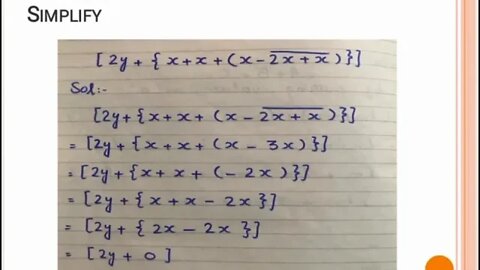 SIMPLIFY
[2y + { x + x + (x - 2x + x̅)}]
Sol:-
[2y + {x + x + (x - 2x + x̅)}]
= [2y + {x + x + (x - 3x)}]
= [2y + {x + x + (- 2x)}]
= [2y + {x + x - 2x}]
= [2y + { 2x - 2x }]
= [2y + 0]